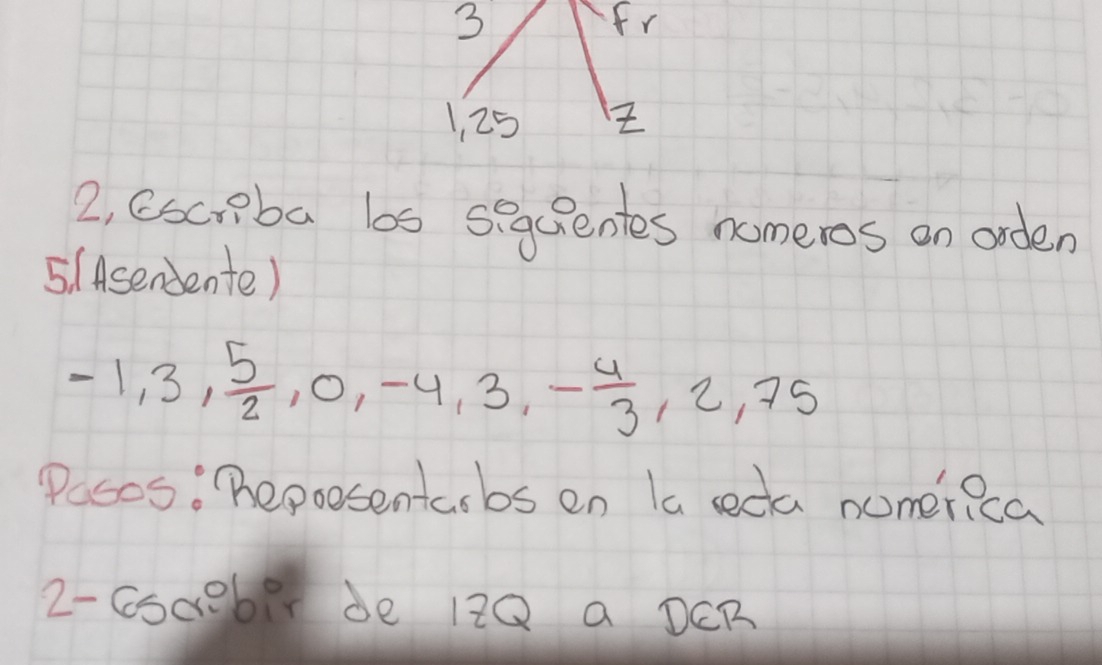 3 fr
1,25 Z
2, Escriba los siguientes numeros en orden
5.(Asendente)
-1,3, 5/2, 0, -4, 3, -4/3, 2, 75
Pasos: Representarlos en la recta numérica
2- Escribir de IZQ a DER